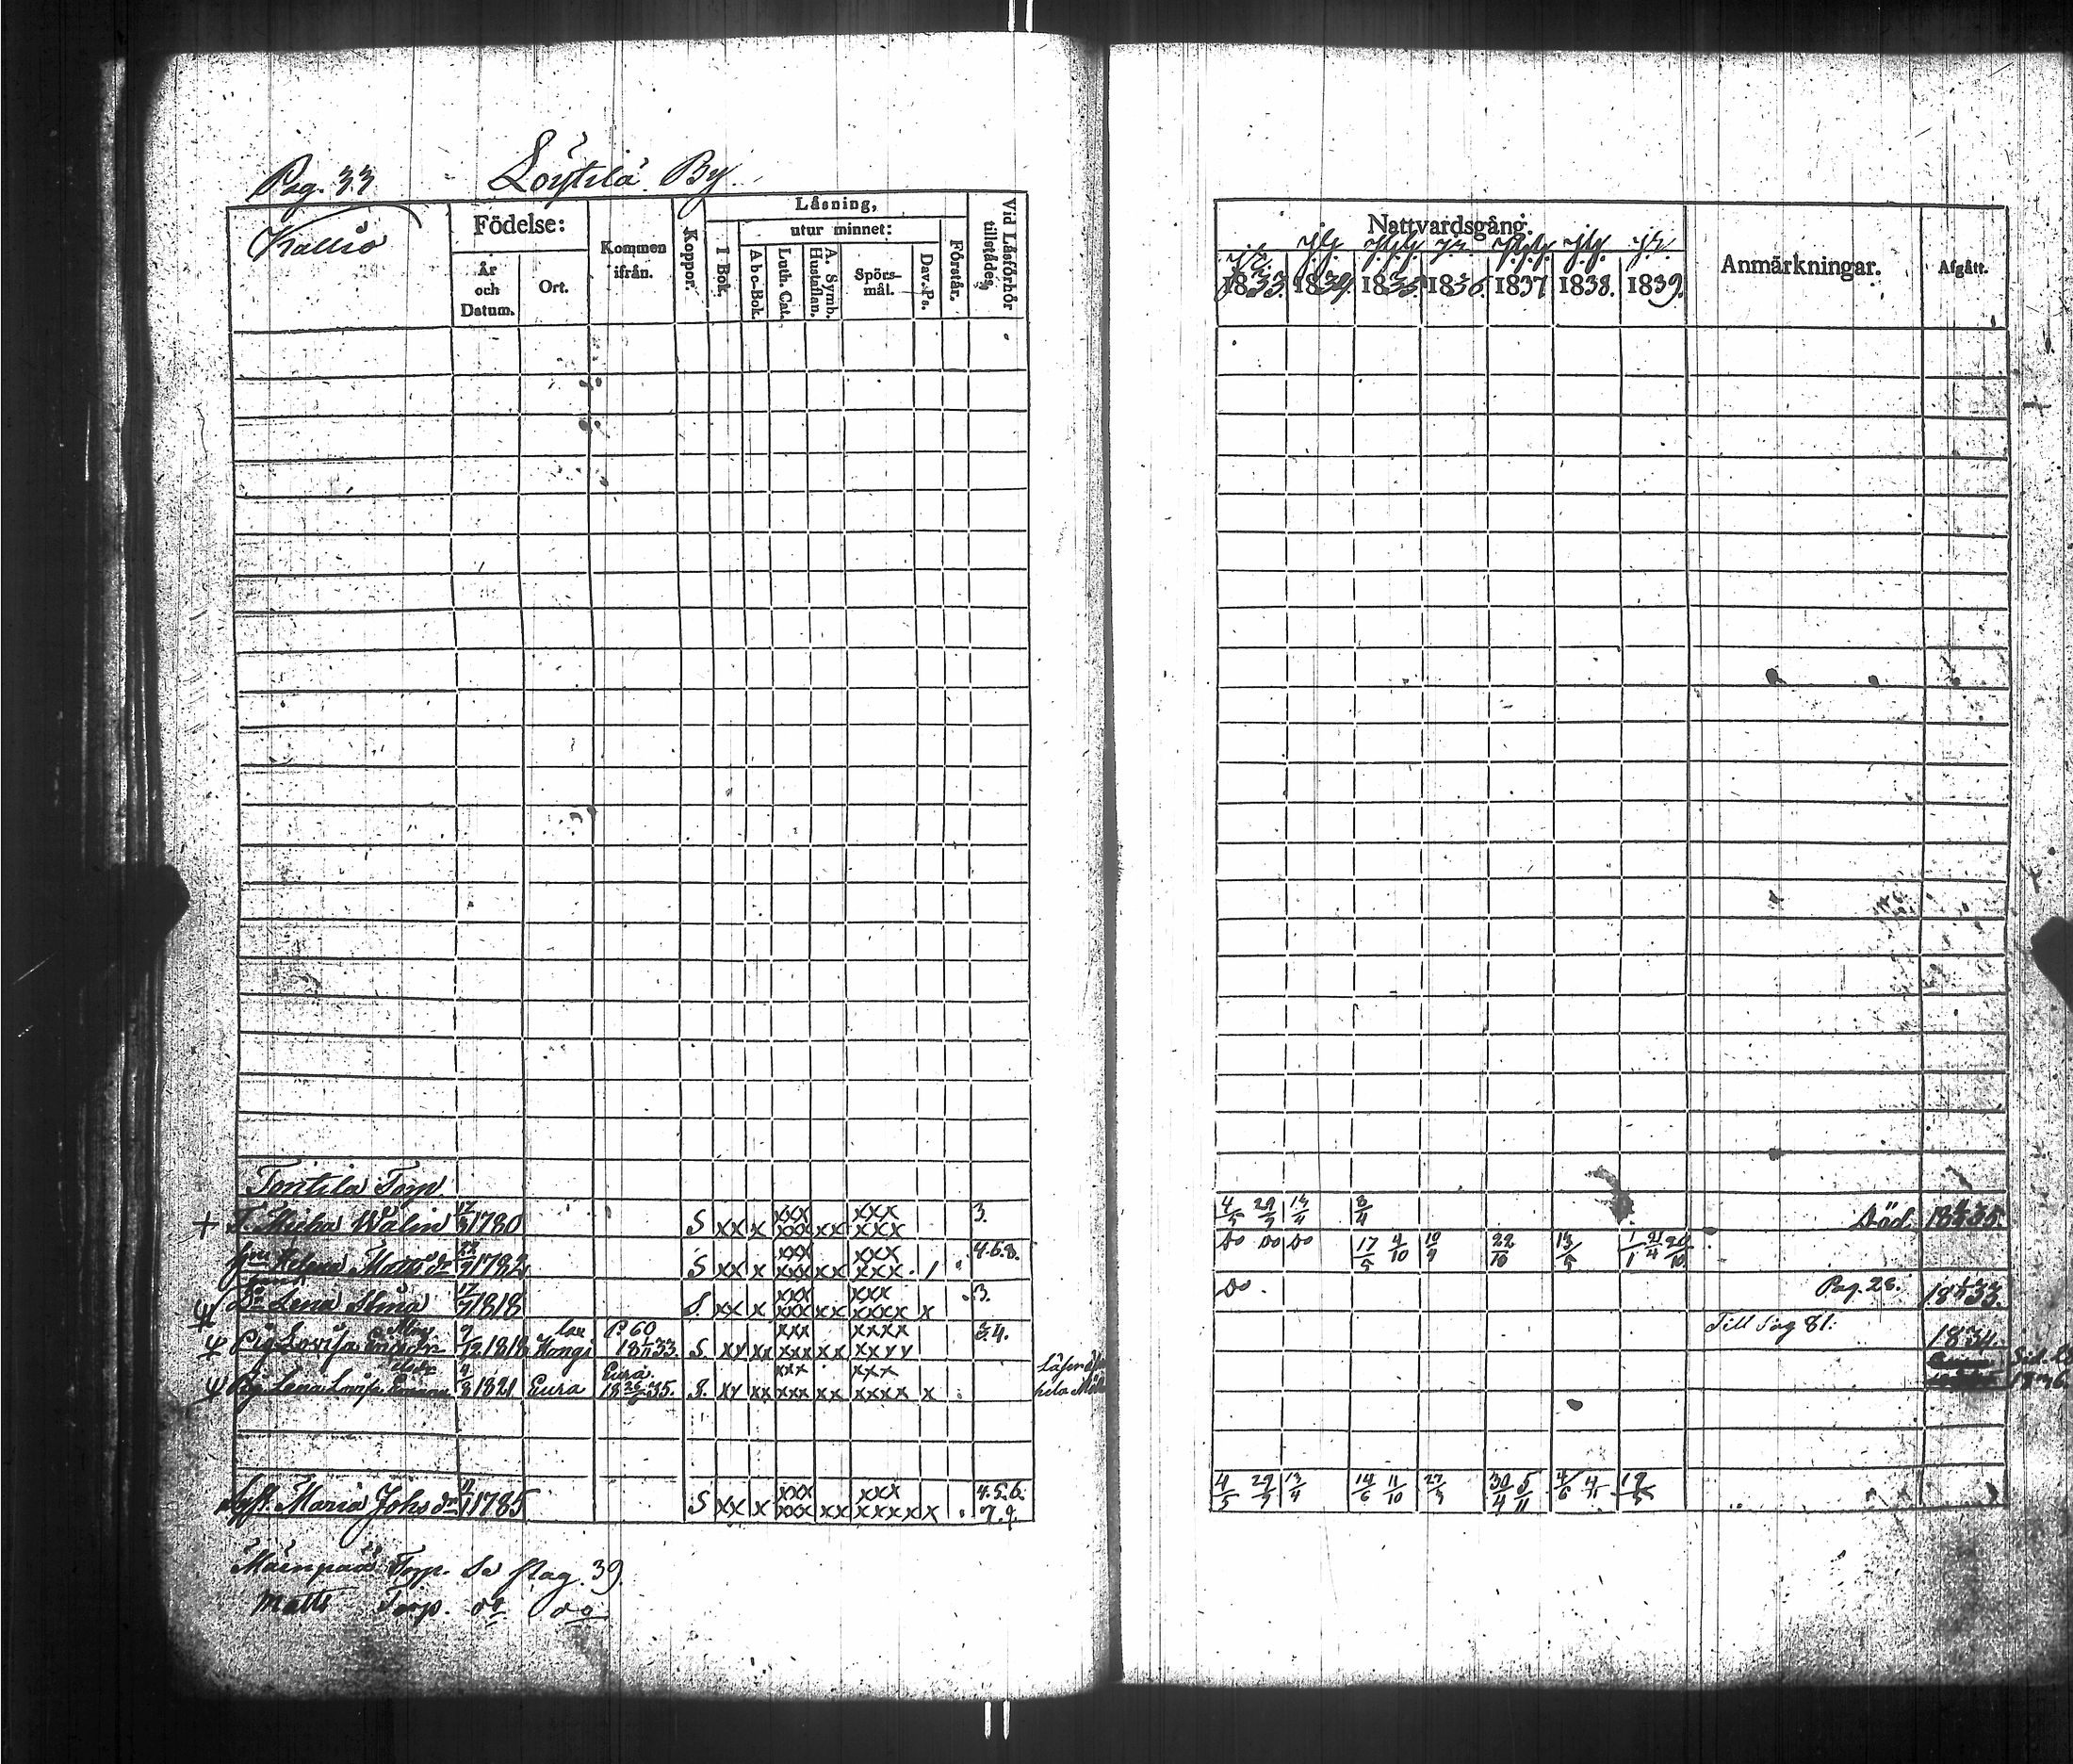 Pag. 33 Löytilä By
Kallio
Födelse:
År och Datum.
Ort.
Kommen ifrån.
Koppor.
Läsning,
utur minnet:
I Bok.
Abo-Bok.
Luth. Cat.
A. Symb. Hustaflan.
Spörsmål.
Dav. Ps.
Förstår.
Vid Läsförhör tillstädes.
Nattvardsgång.
1833. 1834. 1835. 1836. 1837. 1838. 1839.
Anmärkningar.
Afgått.
Tontila Torp
+ T. Micha Wälin 17/3 1780 S xx x xxx xxx xx xxx xxx 3. 4/5 29/9 13/4 8/4 Död
Helena Matts dr 1782 S xx x xxx xxx xx xxx xxx 4.6.8. do do do 17/5 4/10 19/9 22/10 13/5 1/1 21/4 20/10
Dr Lena Stina 17/7 1818 S xx x xxx xxx xx xxx xxxx x 3. do. Pag. 28. 1833.
Pig Lovisa 9/12 1818 Hongi P. 60 S xx xx xxx xxx xx xxxx 3.4. Till Pag 81: 1834.
Pig Lena Lovisa 4/8 1821 Eura Eura S. xx xx xxx xxx xx xxx xxxx x
1836.
Maria Johs dr 11/1 1785 S xx x xxx xxx xx xxx xxxxx x 4.5.6. 7.9. 4/5 29/9 13/4 14/6 11/10 27/9 30/4 5/11 4/6 4/11
Mäenpää Torp. Se Pag. 39.
Matts Torp. do do